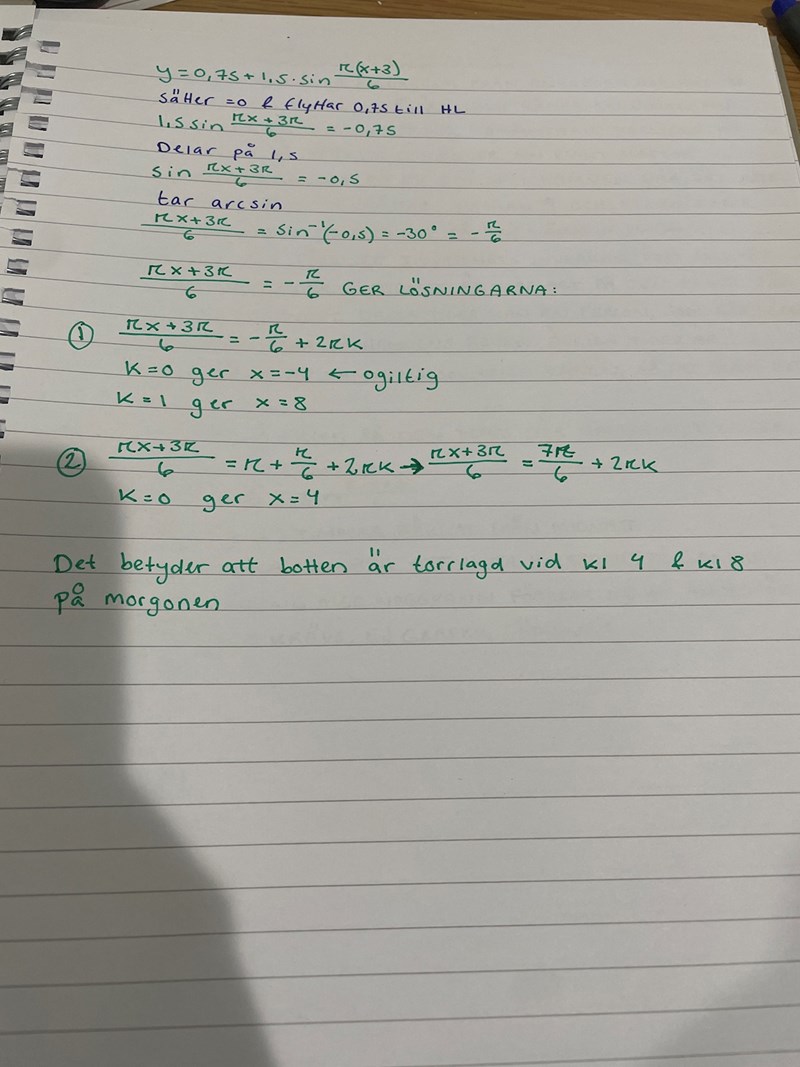 y = 0,75 + 1,5 · sin π(x+3)/6
sätter =0 & flyttar 0,75 till HL
1,5 sin πx + 3π/6 = -0,75
Delar på 1,5
sin πx + 3π/6 = -0,5
tar arcsin
πx + 3π/6 = sin⁻¹(-0,5) = -30° = -π/6
πx + 3π/6 = -π/6 GER LÖSNINGARNA:
① πx + 3π/6 = -π/6 + 2πK
K=0 ger x=-4 ← ogiltig
K=1 ger x=8
② πx+3π/6 = π + π/6 + 2πK → πx+3π/6 = 7π/6 + 2πK
K=0 ger x=4
Det betyder att botten är torrlagd vid kl 4 & kl 8
på morgonen